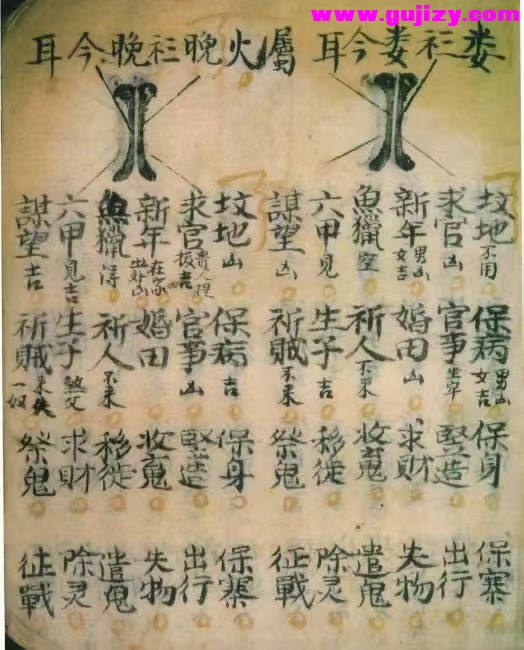 www.gujizy.com
娄衫娄今耳
屬火晚衫晚今耳
坟地不用 保病男凶女吉 保身 保寨
求官凶 官事坐牢 竪造 出行
新年男凶女吉 婚田凶 求財 失物
魚獵空 祈人不来 收 遣鬼
六甲見 生子吉 移徙 除灵
謀望凶 祈賊不来 祭鬼 征戰
坟地凶 保病吉 保身 保寨
求官貴人提拔吉 官事凶 竪造 出行
新年在家出外凶 婚田 收 失物
魚獵淂 祈人不来 移徙 遣鬼
六甲見吉 生子煞父 求財 除灵
謀望吉 祈賊来失一奴 祭鬼 征戰